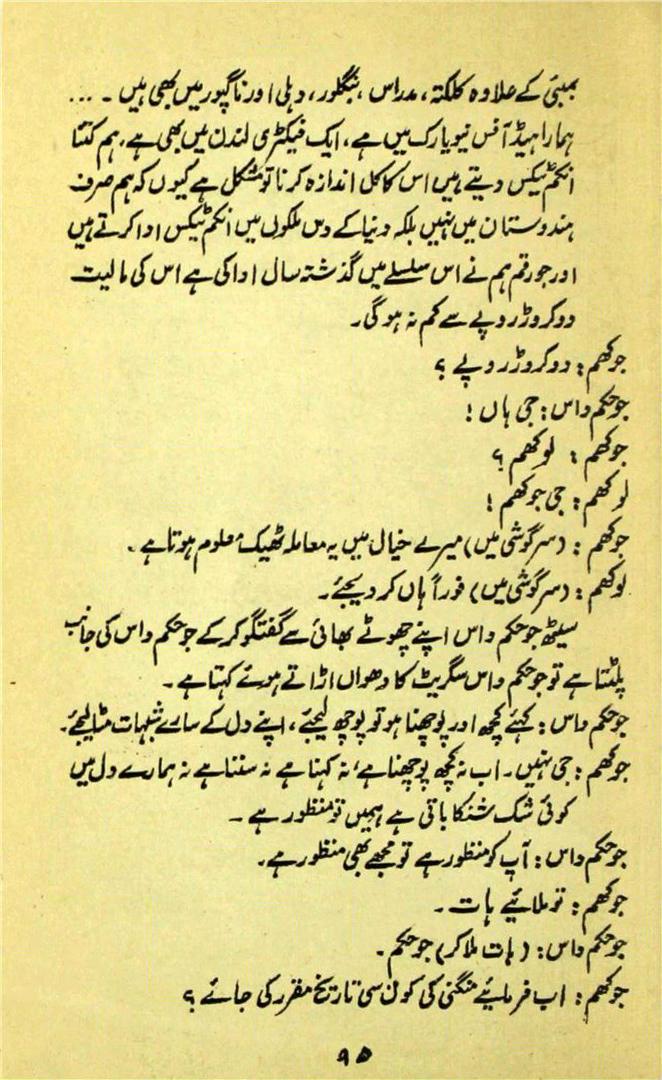 بمبئی کے علاوہ کلکتہ، مدراس، بنگلور، دہلی اور ناگپور میں بھی ہیں ۔ ...
ہمارا ہیڈ آفس نیویارک میں ہے، ایک فیکٹری لندن میں بھی ہے، ہم کتنا
انکم ٹیکس دیتے ہیں اس کا کل اندازہ کرنا تو مشکل ہے کیوں کہ ہم صرف
ہندوستان میں نہیں بلکہ دنیا کے دس ملکوں میں انکم ٹیکس ادا کرتے ہیں
اور جو رقم ہم نے اس سلسلے میں گذشتہ سال ادا کی ہے اس کی مالیت
دو کروڑ روپے سے کم نہ ہو گی۔
جوکھم : دو کروڑ روپے ؟
جوحکم داس : جی ہاں !
جوکھم : لوکھم ؟
لوکھم : جی جوکھم !
جوکھم : (سرگوشی میں) میرے خیال میں یہ معاملہ ٹھیک معلوم ہوتا ہے ۔
لوکھم : (سرگوشی میں) فوراً ہاں کر دیجئے ۔
سیٹھ جوحکم داس اپنے چھوٹے بھائی سے گفتگو کر کے جوحکم داس کی جانب
پلٹتا ہے تو جوحکم داس سگریٹ کا دھواں اڑاتے ہوئے کہتا ہے ۔
جوحکم داس : کہئے کچھ اور پوچھنا ہو تو پوچھ لیجئے، اپنے دل کے سارے شبہات مٹا لیجئے۔
جوکھم : جی نہیں ۔ اب نہ کچھ پوچھنا ہے، نہ کہنا ہے نہ سننا ہے نہ ہمارے دل میں
کوئی شک شنکا باقی ہے ہمیں تو منظور ہے ۔
جوحکم داس : آپ کو منظور ہے تو مجھے بھی منظور ہے۔
جوکھم : تو ملائیے ہات ۔
جوحکم داس : (ہات ملا کر) جوحکم ۔
جوکھم : اب فرمائیے منگنی کی کون سی تاریخ مقرر کی جائے ؟
۹۵